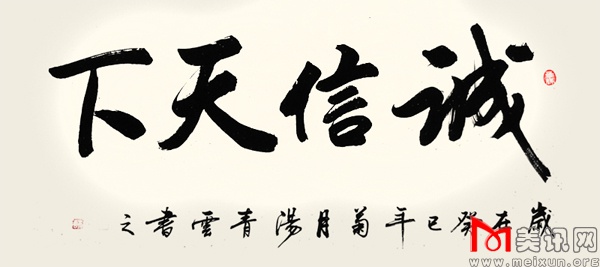 誠信天下
歲在癸巳年菊月湯青雲書之
美讯网
www.meixun.org